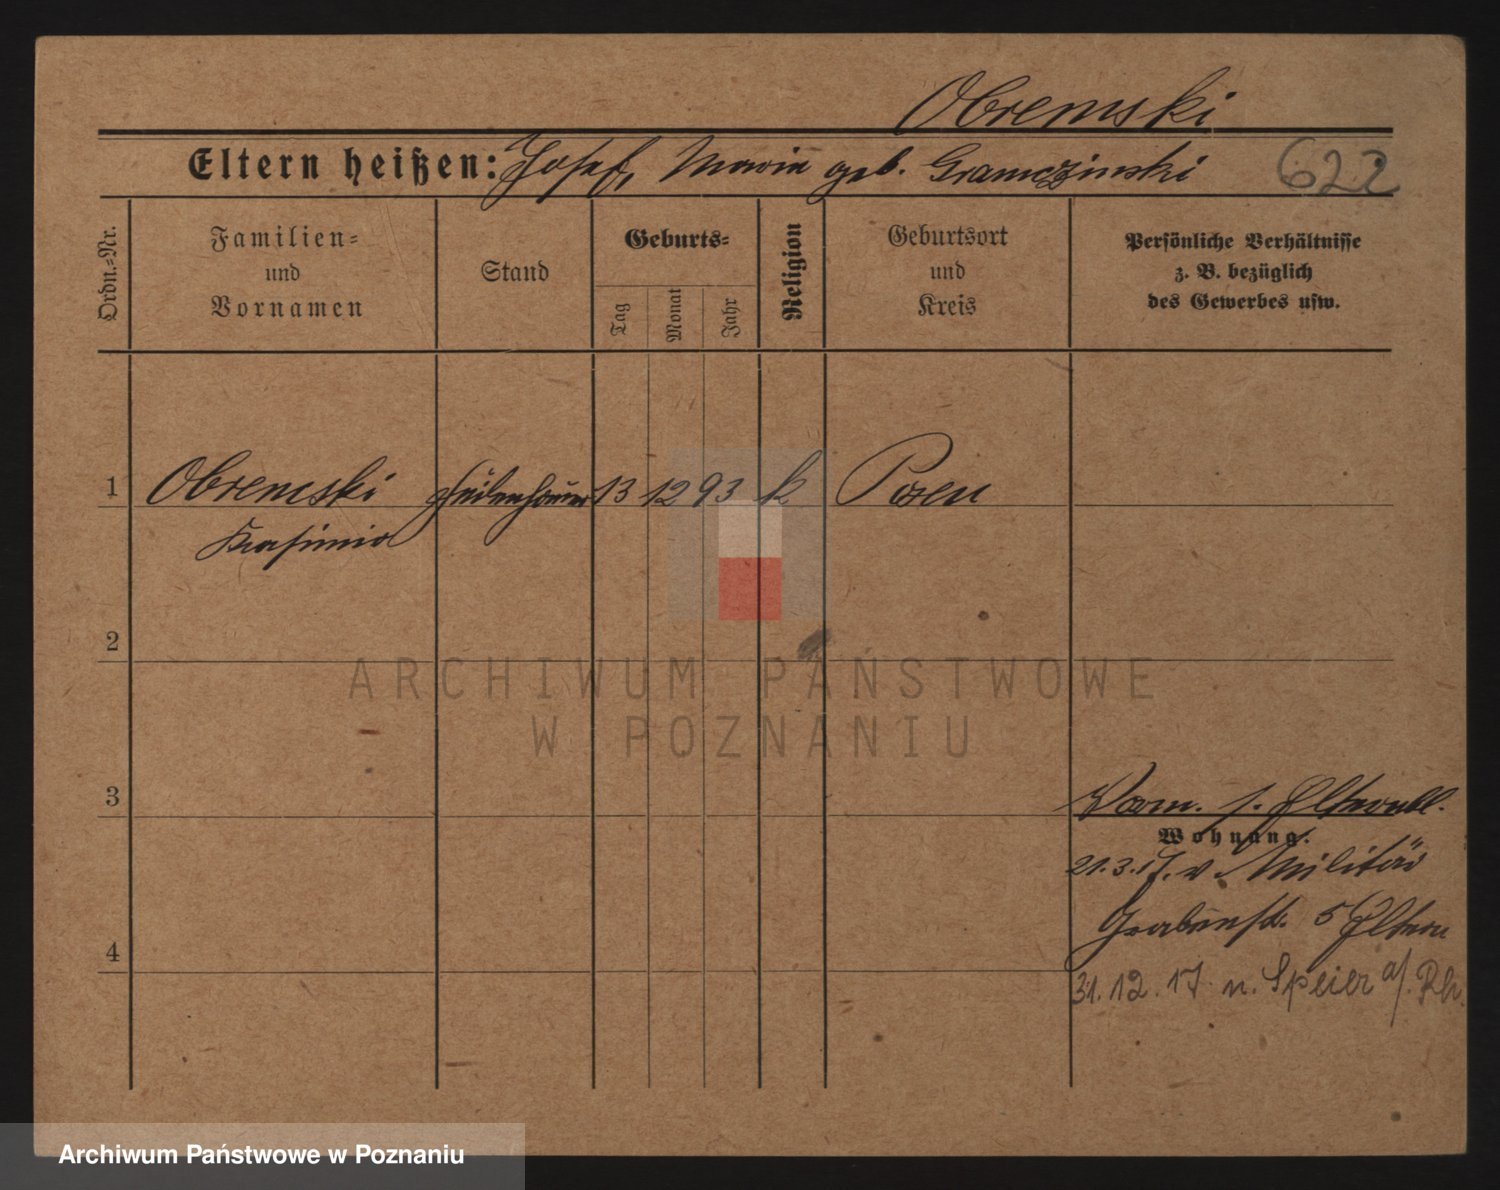 Obremski
Eltern heißen: Josef, Maria geb. Gramczinski
622
Ordn.-Nr.
Familien-
und
Vornamen
Stand
Geburts-
Tag
Monat
Jahr
Religion
Geburtsort
und
Kreis
Persönliche Verhältnisse
z. B. bezüglich
des Gewerbes usw.
1 Obremski 13 12 93 k Posen
Kasimir
2
ARCHIWUM PAŃSTWOWE
W POZNANIU
3
Vorm. s. Elternbl.
Wohnung.
21.3.17. v. Militär
Grabenstr. 5 Eltern
4
31.12.17. n. Speier a/. Rh.
Archiwum Państwowe w Poznaniu